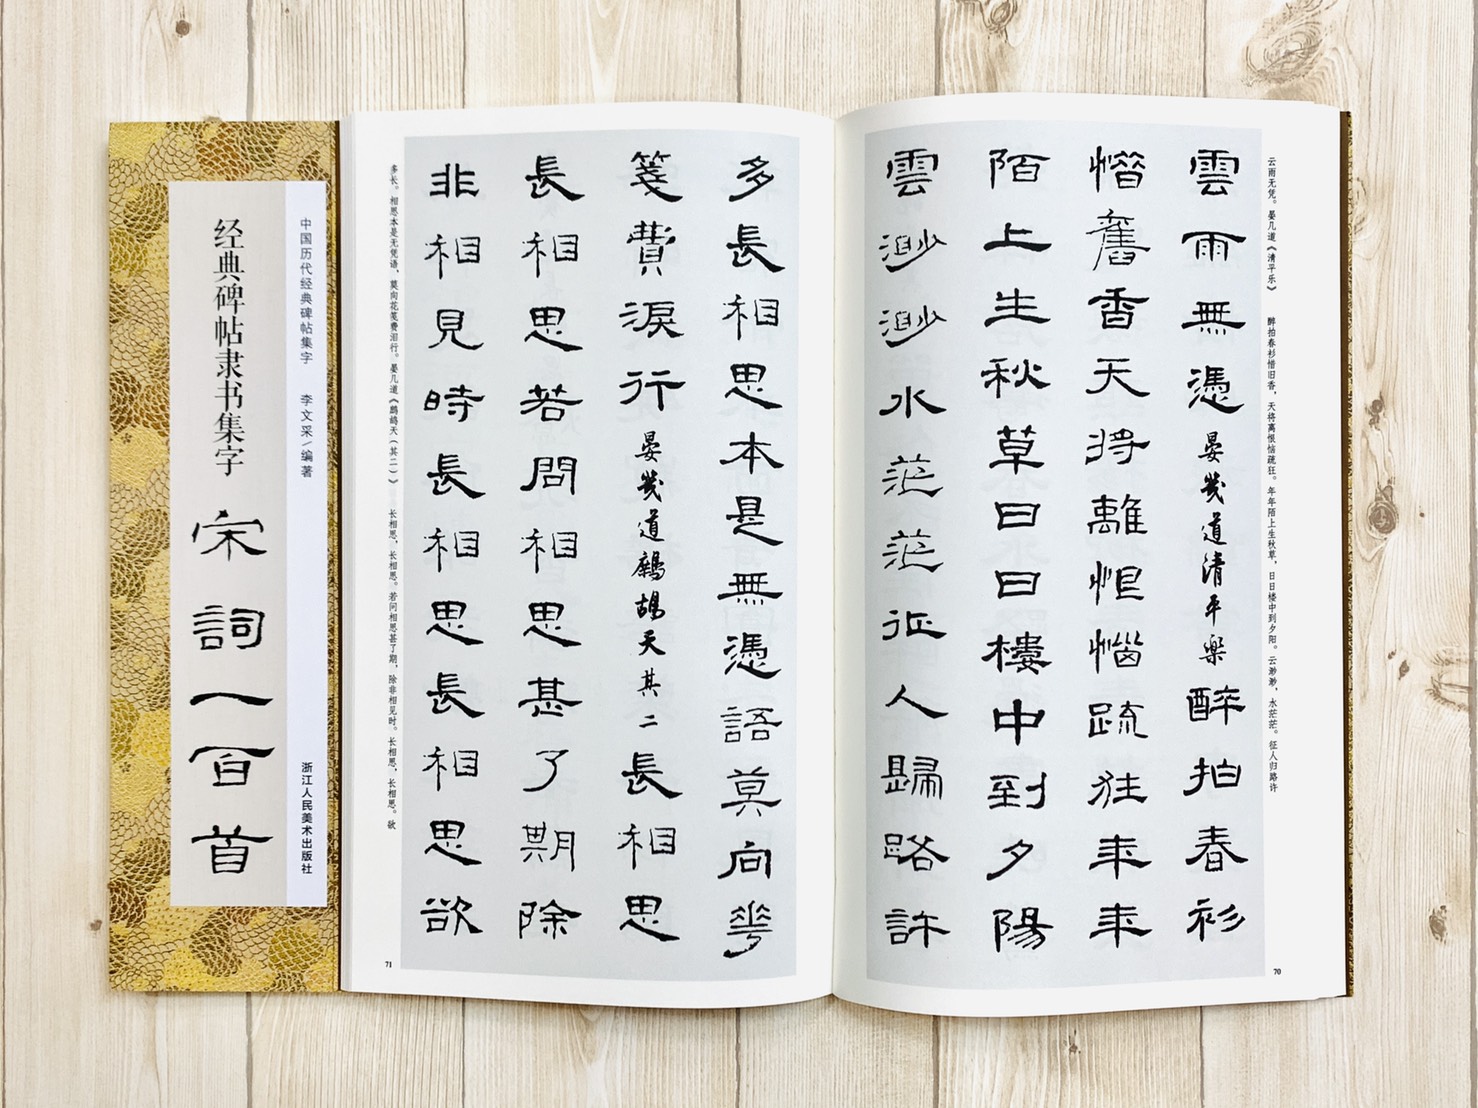 云雨无凭。晏几道《清平乐》　醉拍春衫惜旧香，天将离恨恼疏狂。年年陌上生秋草，日日楼中到夕阳。云渺渺，水茫茫。征人归路许
雲雨無憑晏幾道清平樂醉拍春衫
惜舊香天將離恨惱疏狂年年
陌上生秋草日日樓中到夕陽
雲渺渺水茫茫征人歸路許
70
多長相思本是無憑語莫向花
箋費淚行晏幾道鷓鴣天其二長相思
長相思若問相思甚了期除
非相見時長相思長相思欲
多长。相思本是无凭语，莫向花笺费泪行。晏几道《鹧鸪天（其二）》　长相思，长相思。若问相思甚了期，除非相见时。长相思，长相思。欲
71
中国历代经典碑帖集字　李文采/编著　浙江人民美术出版社
经典碑帖隶书集字　宋詞一百首